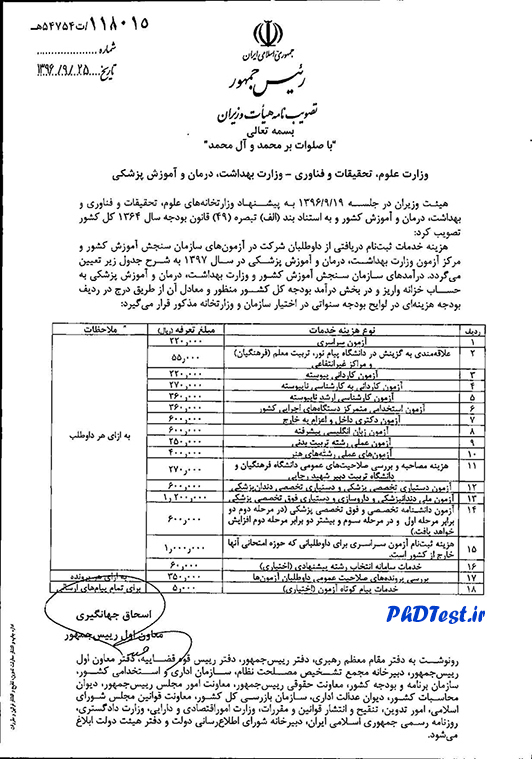 ۱۱۸۰۱۵/ت۵۴۷۵۴هـ
شماره
تاریخ ۱۳۹۶/۹/۲۵
جمهوری اسلامی ایران
رئیس جمهور
تصویب نامه هیأت وزیران
بسمه تعالی
"با صلوات بر محمد و آل محمد"
وزارت علوم، تحقیقات و فناوری – وزارت بهداشت، درمان و آموزش پزشکی
هیئت وزیران در جلسه ۱۳۹۶/۹/۱۹ به پیشنهاد وزارتخانه‌های علوم، تحقیقات و فناوری و
بهداشت، درمان و آموزش پزشکی کشور و به استناد بند (الف) تبصره (۴۹) قانون بودجه سال ۱۳۶۴ کل کشور
تصویب کرد:
هزینه خدمات ثبت‌نام دریافتی از داوطلبان شرکت در آزمون‌های سازمان سنجش آموزش کشور و
مرکز آزمون وزارت بهداشت، درمان و آموزش پزشکی در سال ۱۳۹۷ به شرح جدول زیر تعیین
می‌گردد. درآمدهای سازمان سنجش آموزش کشور و وزارت بهداشت، درمان و آموزش پزشکی به
حساب خزانه واریز و در بخش درآمد بودجه کل کشور منظور و معادل آن از طریق درج در ردیف
بودجه هزینه‌ای در لوایح بودجه سنواتی در اختیار سازمان و وزارتخانه مذکور قرار می‌گیرد:
ردیف نوع هزینه خدمات مبلغ تعرفه (ریال) ملاحظات
۱ آزمون سراسری ۲۲۰,۰۰۰
۲ علاقه‌مندی به گزینش در دانشگاه پیام نور، تربیت معلم (فرهنگیان)
و مراکز غیرانتفاعی ۵۵,۰۰۰
۳ آزمون کاردانی پیوسته ۲۲۰,۰۰۰
۴ آزمون کاردانی به کارشناسی ناپیوسته ۲۷۰,۰۰۰
۵ آزمون کارشناسی ارشد ناپیوسته ۳۶۰,۰۰۰
۶ آزمون استخدامی متمرکز دستگاه‌های اجرایی کشور ۳۶۰,۰۰۰
۷ آزمون دکتری داخل و اعزام به خارج ۶۰۰,۰۰۰
۸ آزمون زبان انگلیسی پیشرفته ۶۰۰,۰۰۰
۹ آزمون عملی رشته تربیت بدنی ۲۵۰,۰۰۰
۱۰ آزمون‌های عملی رشته‌های هنر ۴۰۰,۰۰۰
به ازای هر داوطلب
۱۱ هزینه مصاحبه و بررسی صلاحیت‌های عمومی دانشگاه فرهنگیان و
دانشگاه تربیت دبیر شهید رجایی ۲۷۰,۰۰۰
۱۲ آزمون دستیاری تخصصی پزشکی و دستیاری تخصصی دندان‌پزشکی ۶۰۰,۰۰۰
۱۳ آزمون ملی دندانپزشکی و داروسازی و دستیاری فوق تخصصی پزشکی ۱,۲۰۰,۰۰۰
۱۴ آزمون دانشنامه تخصصی و فوق تخصصی پزشکی (در مرحله دوم دو
برابر مرحله اول و در مرحله سوم و بیشتر دو برابر مرحله دوم افزایش
خواهد یافت) ۶۰۰,۰۰۰
۱۵ هزینه ثبت‌نام آزمون سراسری برای داوطلبانی که حوزه امتحانی آنها
خارج از کشور است. ۱,۰۰۰,۰۰۰
۱۶ خدمات سامانه انتخاب رشته پیشنهادی (اختیاری) ۶۰,۰۰۰
۱۷ بررسی پرونده‌های صلاحیت عمومی داوطلبان آزمون‌ها ۳۵۰,۰۰۰ به ازای هر پرونده
۱۸ خدمات پیام کوتاه آزمون (اختیاری) ۵,۰۰۰ برای تمام پیام‌های ارسالی
اسحاق جهانگیری
معاون اول رییس‌جمهور
PhDTest.ir
رونوشت به دفتر مقام معظم رهبری، دفتر رییس‌جمهور، دفتر رییس قوه قضاییه، دفتر معاون اول
رییس‌جمهور، دبیرخانه مجمع تشخیص مصلحت نظام، سازمان اداری و استخدامی کشور،
سازمان برنامه و بودجه کشور، معاونت حقوقی رییس‌جمهور، معاونت امور مجلس رییس‌جمهور، دیوان
محاسبات کشور، دیوان عدالت اداری، سازمان بازرسی کل کشور، معاونت قوانین مجلس شورای
اسلامی، امور تدوین، تنقیح و انتشار قوانین و مقررات، وزارت اموراقتصادی و دارایی، وزارت دادگستری،
روزنامه رسمی جمهوری اسلامی ایران، دبیرخانه شورای اطلاع‌رسانی دولت و دفتر هیئت دولت ابلاغ
می‌شود.